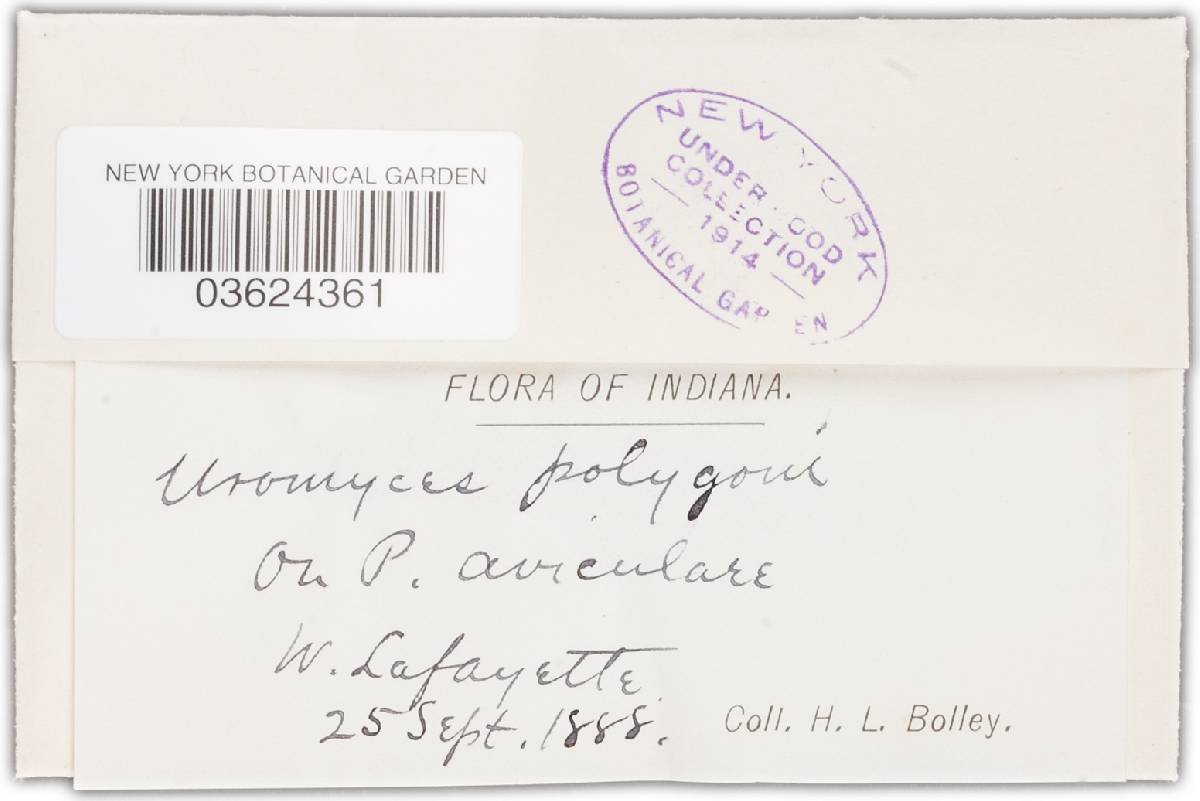 NEW YORK BOTANICAL GARDEN
03624361
NEW YORK
UNDER OOD
COLLECTION
1914
BOTANICAL GAR EN
FLORA OF INDIANA.
Uromyces polygoni
On P. aviculare
W. Lafayette
25 Sept. 1888.
Coll. H. L. Bolley.